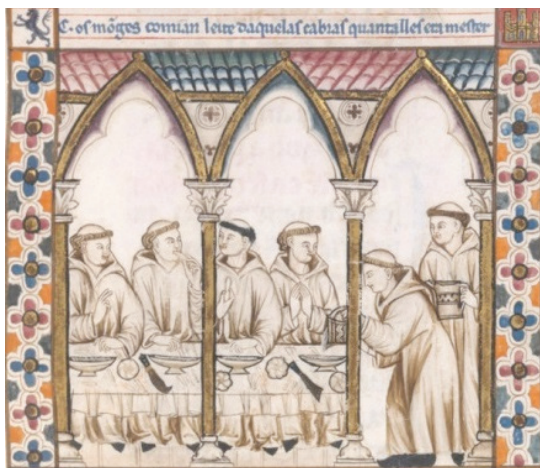 C. os mõges comian leite daquelas cabras quantalles era mester